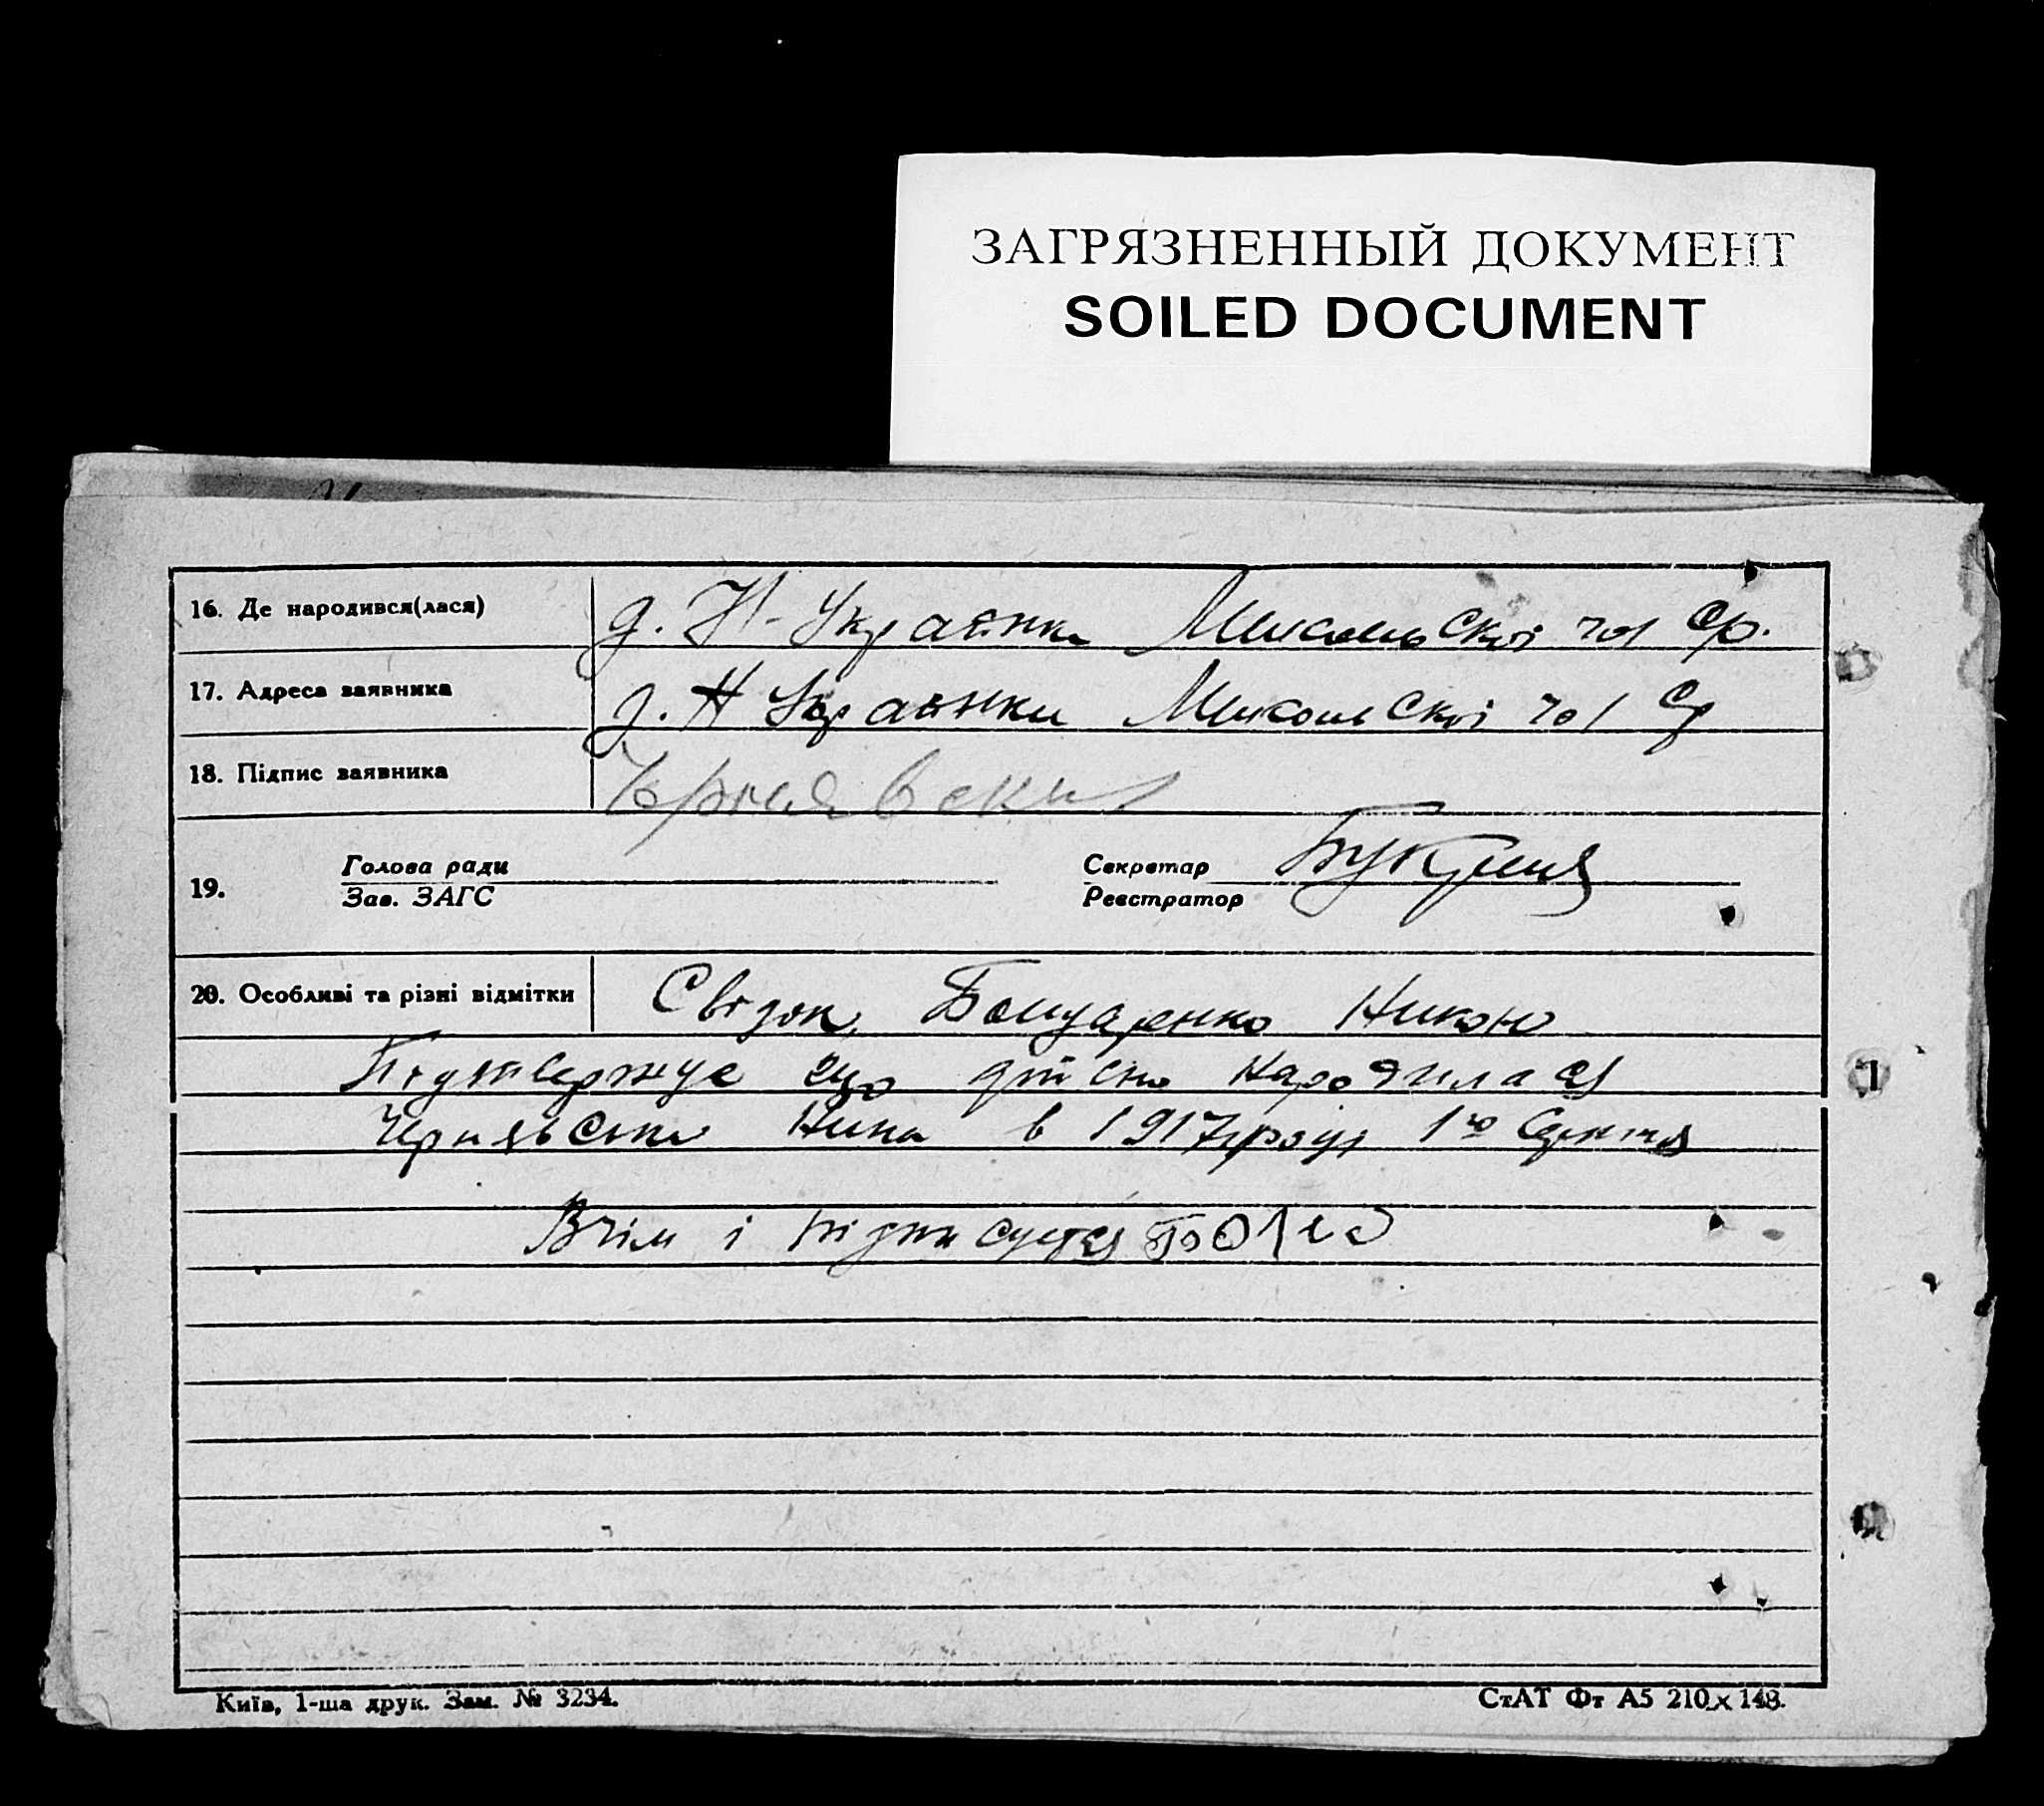 ЗАГРЯЗНЕННЫЙ ДОКУМЕНТ
SOILED DOCUMENT
16. Де народився(лася) д. Н-Українка Микольскої ср.
17. Адреса заявника д. Н Українки Микольскої ср
18. Підпис заявника Чернявский
19. Голова ради Секретар
Зав. ЗАГС Реєстратор
20. Особливі та різні відмітки Свідок Бондаренко Никон
Підтвержує що дійсно народилася
Чернявська Нина в 1917 році 1го
Вчім і підписуется
Київ, 1-ша друк. Зам. № 3234.
СтАТ Фт А5 210 x 148.